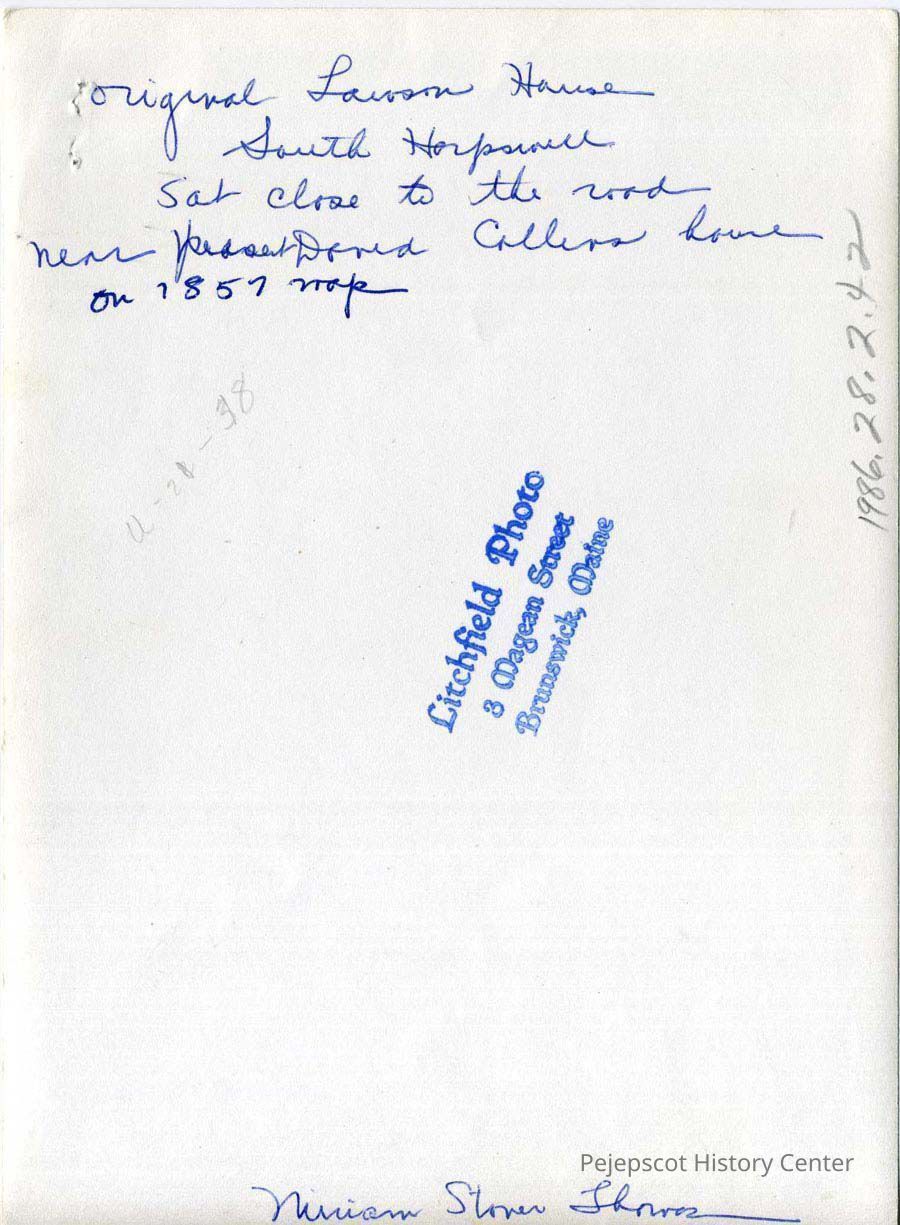 original Lawson House
South Harpswell
Sat close to the road
near present David Collins house
on 1857 map
1986.28.2.42
Litchfield Photo
3 Magean Street
Brunswick, Maine
Pejepscot History Center
Miriam Stover Thomas